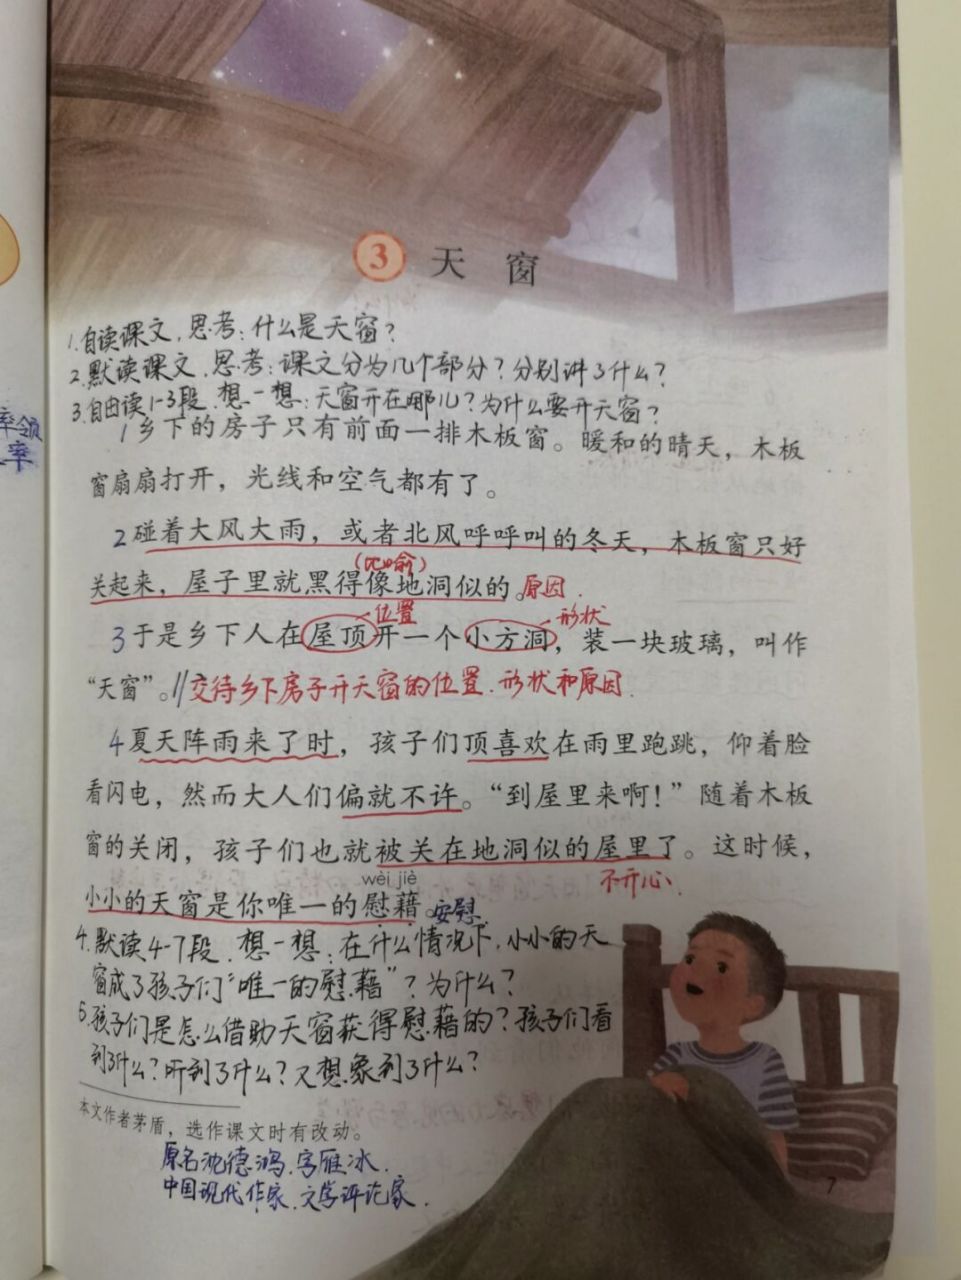 3 天 窗
1.自读课文,思考:什么是天窗?
2.默读课文,思考:课文分为几个部分?分别讲了什么?
3.自由读1-3段,想一想:天窗开在哪儿?为什么要开天窗?
率领
率
1乡下的房子只有前面一排木板窗。暖和的晴天,木板
窗扇扇打开,光线和空气都有了。
2碰着大风大雨,或者北风呼呼叫的冬天,木板窗只好
(比喻)
关起来,屋子里就黑得像地洞似的。原因.
位置 形状
3于是乡下人在屋顶开一个小方洞,装一块玻璃,叫作
“天窗”。//交待乡下房子开天窗的位置.形状和原因.
4夏天阵雨来了时,孩子们顶喜欢在雨里跑跳,仰着脸
看闪电,然而大人们偏就不许。“到屋里来啊!”随着木板
窗的关闭,孩子们也就被关在地洞似的屋里了。这时候,
wèi jiè 不开心.
小小的天窗是你唯一的慰藉。安慰.
4.默读4-7段.想一想:在什么情况下,小小的天
窗成了孩子们“唯一的慰藉”?为什么?
5.孩子们是怎么借助天窗获得慰藉的?孩子们看
到了什么?听到了什么?又想象到了什么?
本文作者茅盾,选作课文时有改动。
原名沈德鸿.字雁冰.
中国现代作家.文学评论家.
7